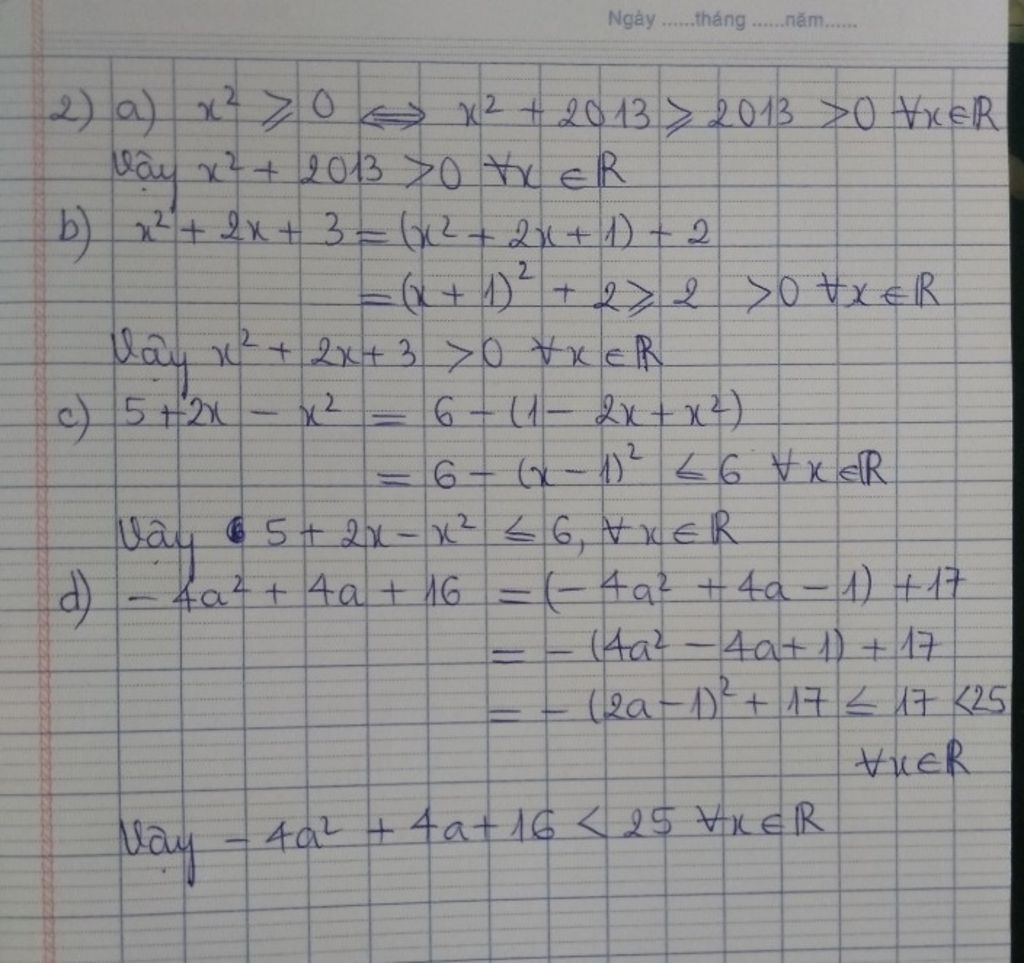 Ngày ......tháng ......năm......
2) a) x² ⩾ 0 ⟺ x² + 2013 ⩾ 2013 > 0 ∀x∈ℝ
Vậy x² + 2013 > 0 ∀x ∈ ℝ
b) x² + 2x + 3 = (x² + 2x + 1) + 2
= (x + 1)² + 2 ⩾ 2 > 0 ∀x ∈ ℝ
Vậy x² + 2x + 3 > 0 ∀x ∈ ℝ
c) 5 + 2x - x² = 6 - (1 - 2x + x²)
= 6 - (x - 1)² ≤ 6 ∀x ∈ ℝ
Vậy 5 + 2x - x² ≤ 6, ∀x ∈ ℝ
d) - 4a² + 4a + 16 = (- 4a² + 4a - 1) + 17
= - (4a² - 4a + 1) + 17
= - (2a - 1)² + 17 ≤ 17 < 25
∀x∈ℝ
Vậy - 4a² + 4a + 16 < 25 ∀x ∈ ℝ